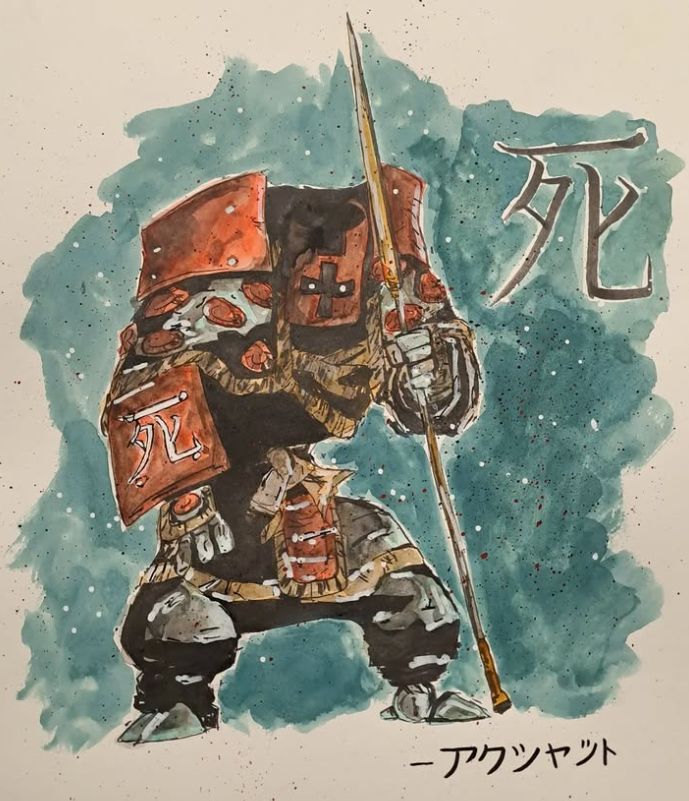 死
死
-アクシャット